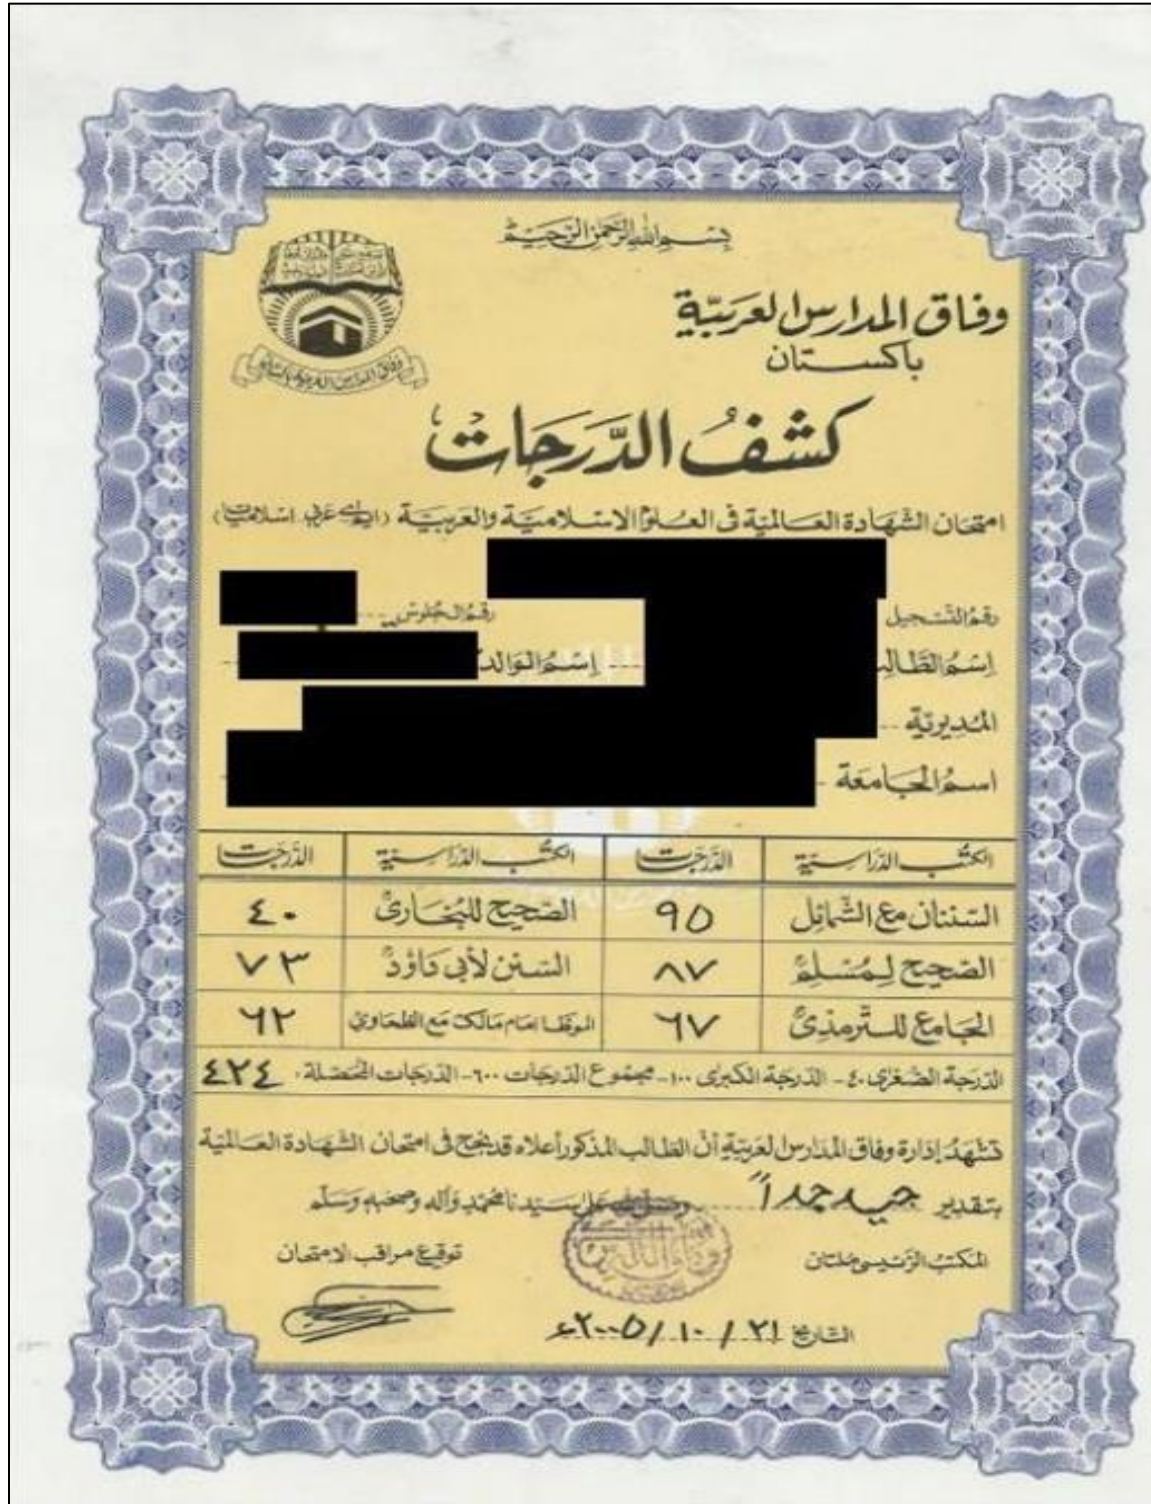 بسم الله الرحمن الرحيم
وفاق المدارس العربية
باكستان
وفاق المدارس العربية باكستان
كشفُ الدَّرَجَات
امتحان الشهادة العالمية في العلوم الاسلامية والعربية (ايم اے عربی، اسلامیات)
رقم التسجيل رقم الجلوس
إسم الطالب إسم الوالد
المديرية
اسم الجامعة
الكتب الدراسية الدرجات الكتب الدراسية الدرجات
السننان مع الشمائل ٩٥ الصحيح للبخاريؒ ٤٠
الصحيح لمسلمؒ ٨٧ السنن لأبي داؤدؒ ٧٣
الجامع للترمذيؒ ٦٧ الموطا امام مالك مع الطحاويؒ ٦٢
الدرجة الصغرى ٤٠- الدرجة الكبرى ١٠٠- مجموع الدرجات ٦٠٠- الدرجات المحصلة: ٤٢٤
تشهد إدارة وفاق المدارس العربية أن الطالب المذكور أعلاه قد نجح في امتحان الشهادة العالمية
بتقدير جيد جداً وصلى الله على سيدنا محمد وآله وصحبه وسلم
المكتب الرئيسي ملتان توقيع مراقب الامتحان
التاريخ ٣١ / ١٠ / ٢٠٠٥ء